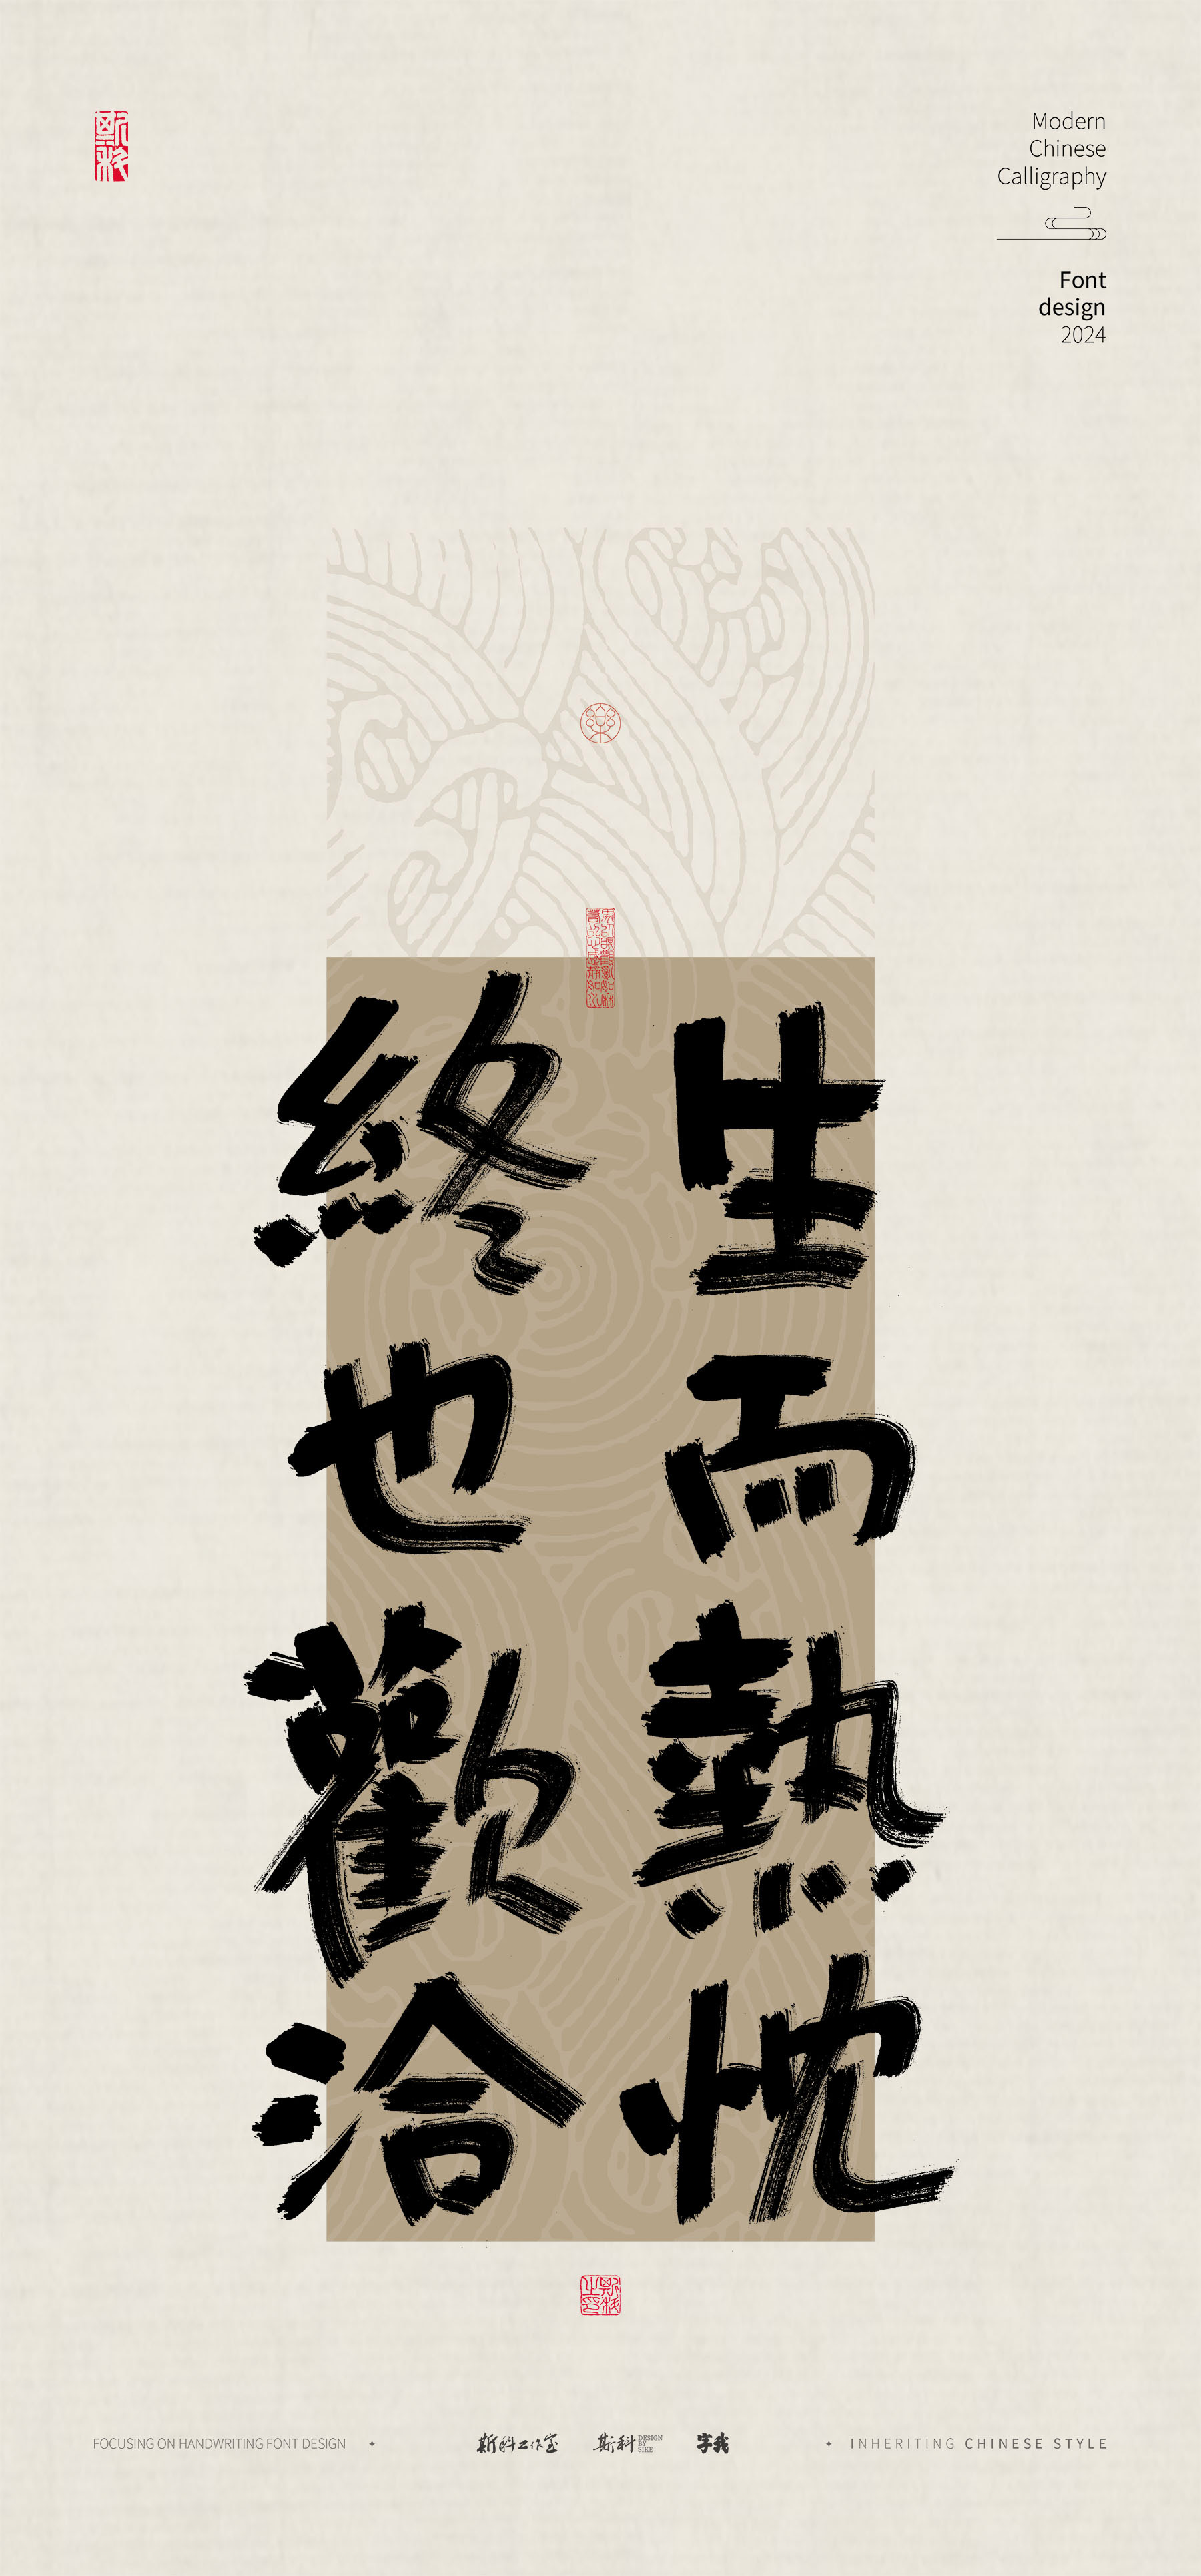 斯科
Modern
Chinese
Calligraphy
Font
design
2024
生而熱忱
終也歡洽
斯科之印
FOCUSING ON HANDWRITING FONT DESIGN
斯科工作室
斯科
DESIGN
BY
SIKE
字我
INHERITING CHINESE STYLE